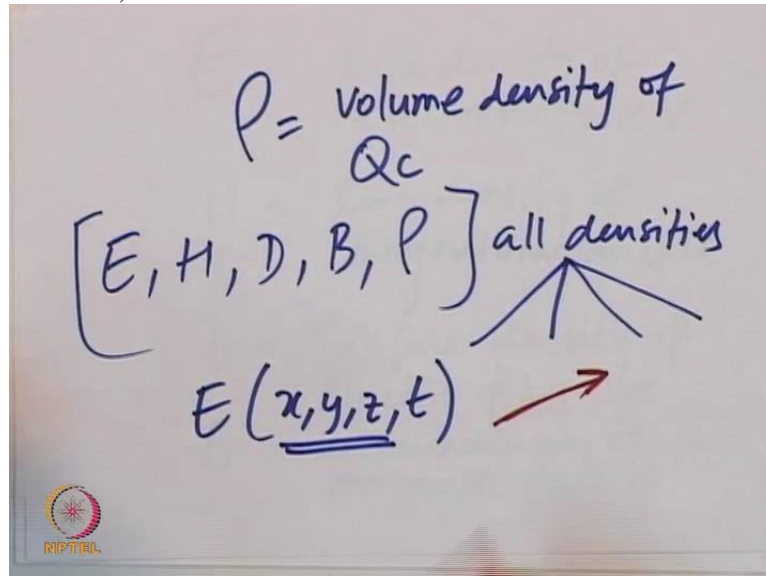 ρ = volume density of
Qc
[E, H, D, B, ρ] all densities
E(x,y,z,t)
NPTEL